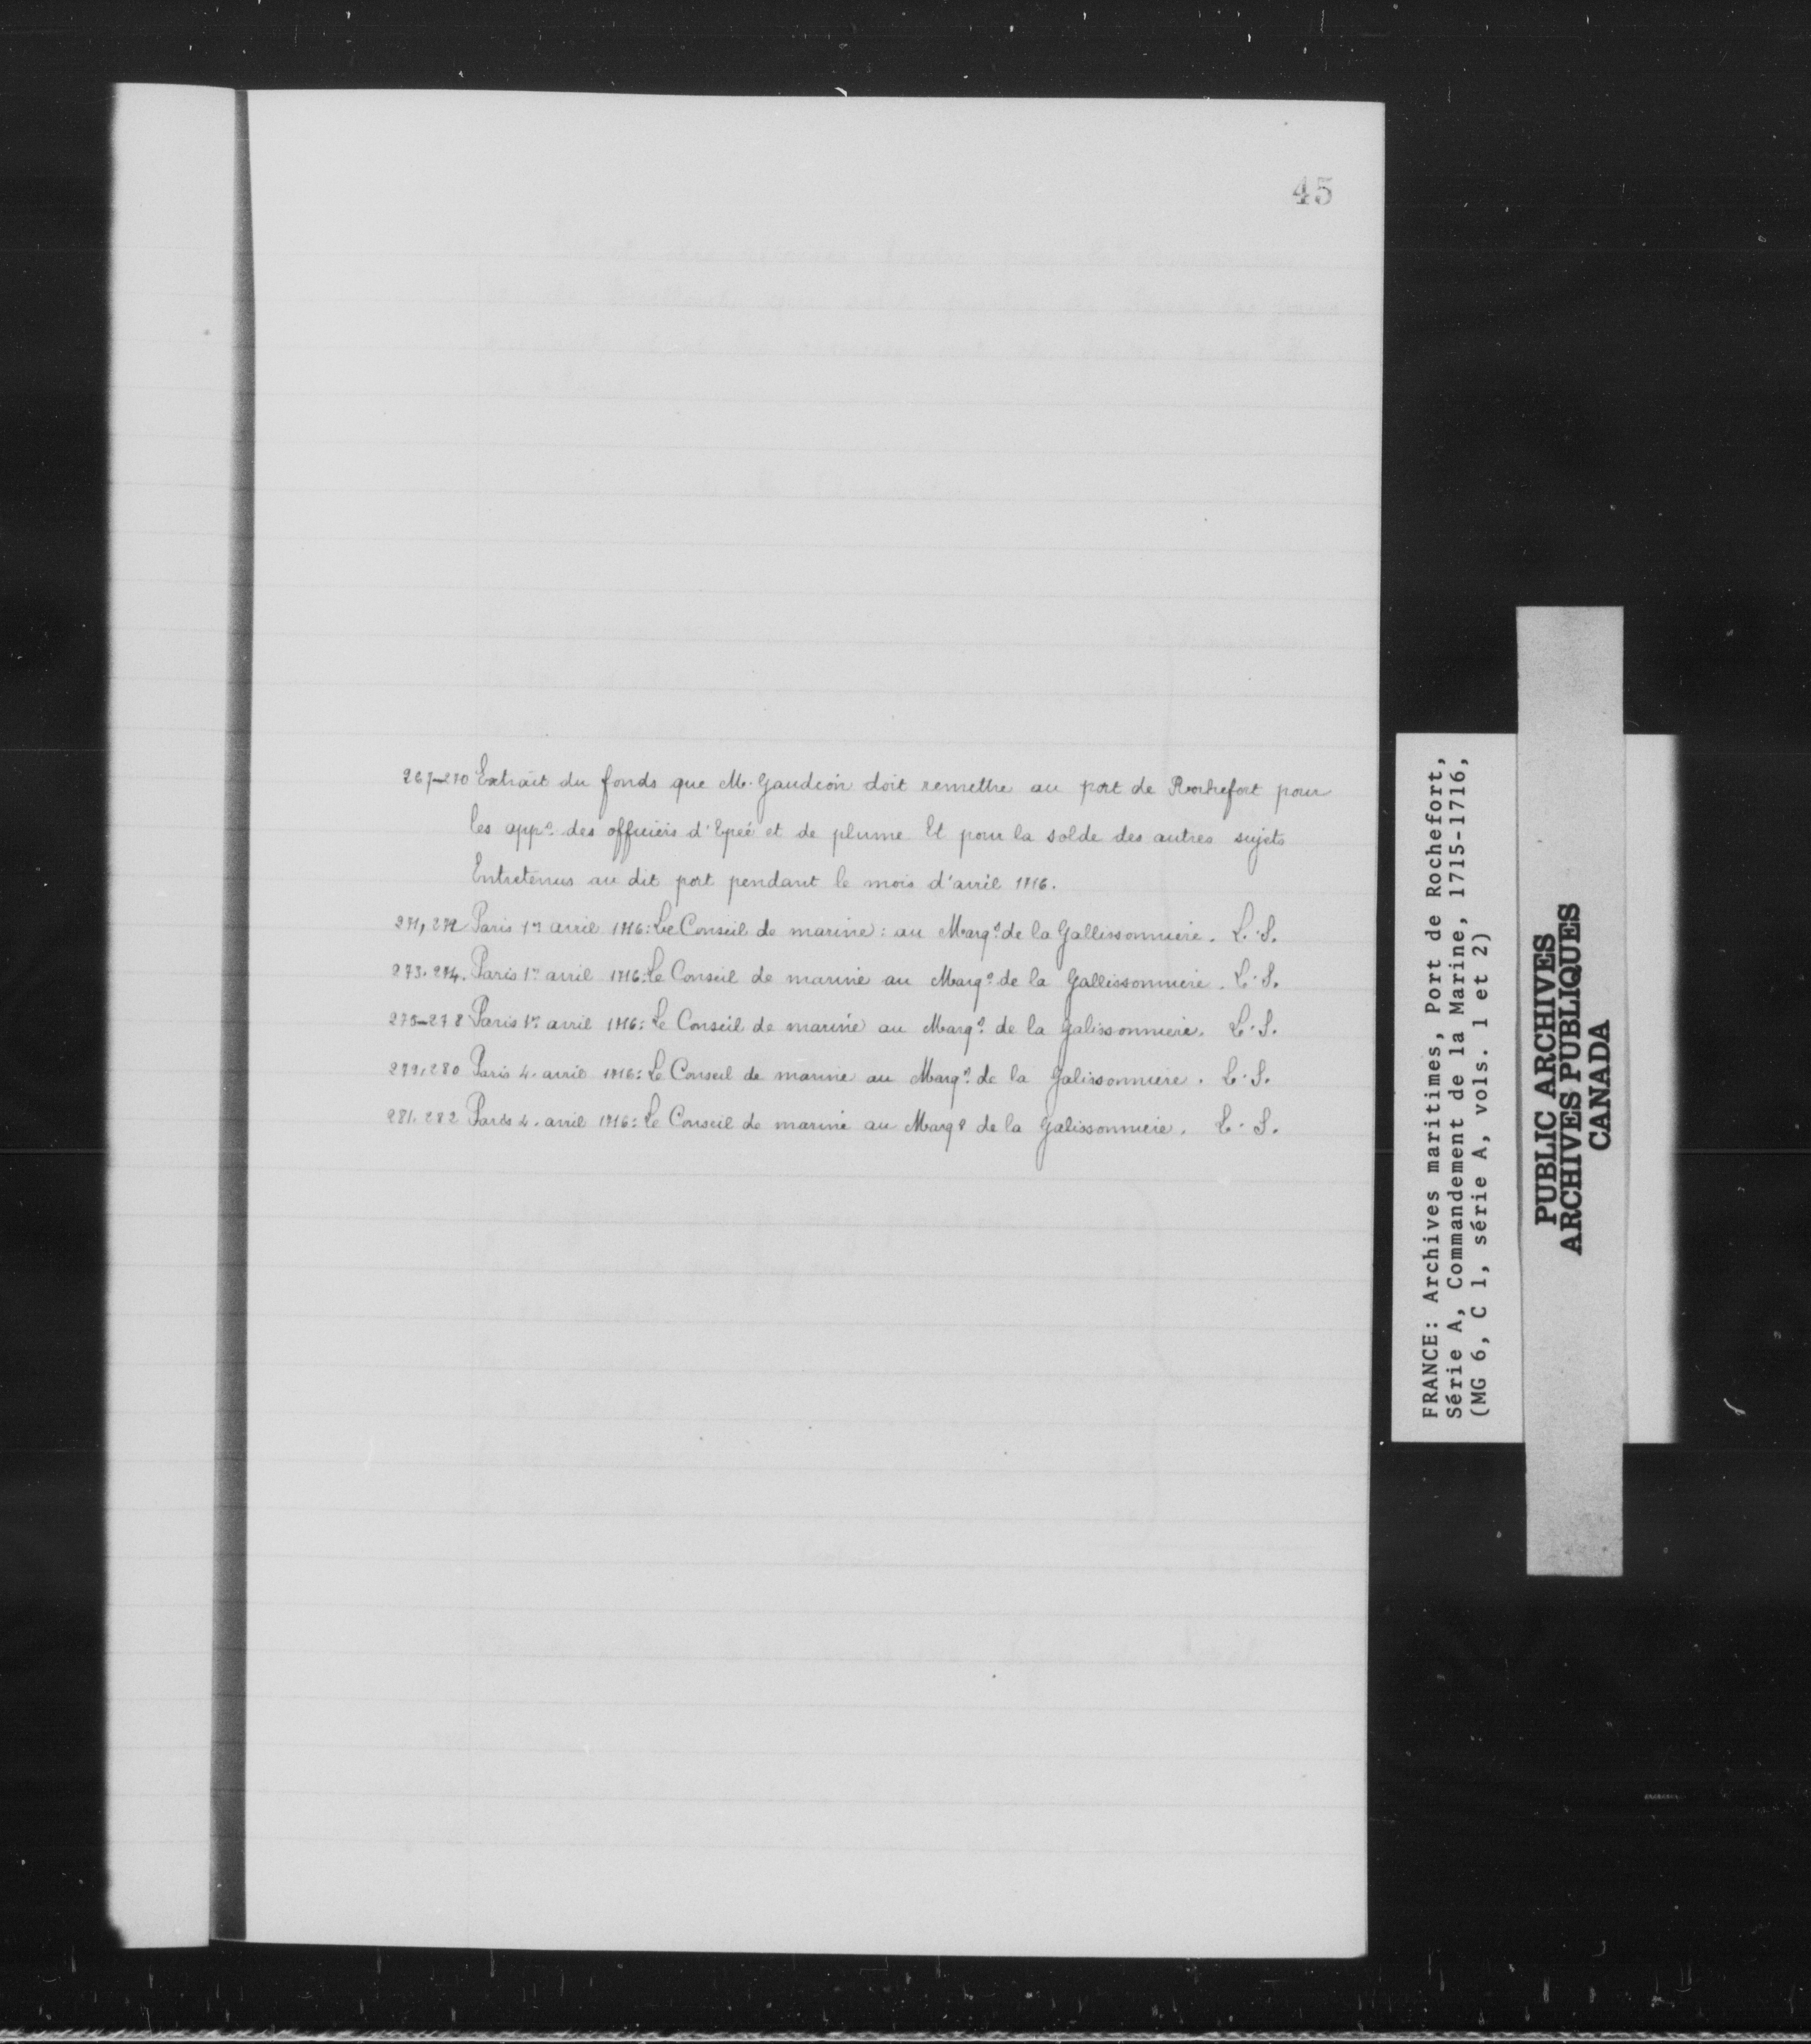 45
267-270 Extrait du fonds que M. Gaudion doit remettre au port de Rochefort pour
les app.s des officiers d'Epée et de plume Et pour la solde des autres sujets
Entretenus au dit port pendant le mois d'avril 1716.
271, 272 Paris 1er avril 1716: Le Conseil de marine: au Marq.s de la Gallissonniere. L. S.
273. 274. Paris 1er avril 1716: Le Conseil de marine au Marq.s de la Gallissonniere. L. S.
275-278 Paris 1er avril 1716: Le Conseil de marine au Marq.s de la Galissonniere. L. S.
279. 280 Paris 4. avril 1716: Le Conseil de marine au Marq.s de la Galissonniere. L. S.
281. 282 Paris 4. avril 1716: Le Conseil de marine au Marq.s de la Galissonniere. L. S.
FRANCE: Archives maritimes, Port de Rochefort,
Série A, Commandement de la Marine, 1715-1716,
(MG 6, C 1, série A, vols. 1 et 2)
PUBLIC ARCHIVES
ARCHIVES PUBLIQUES
CANADA